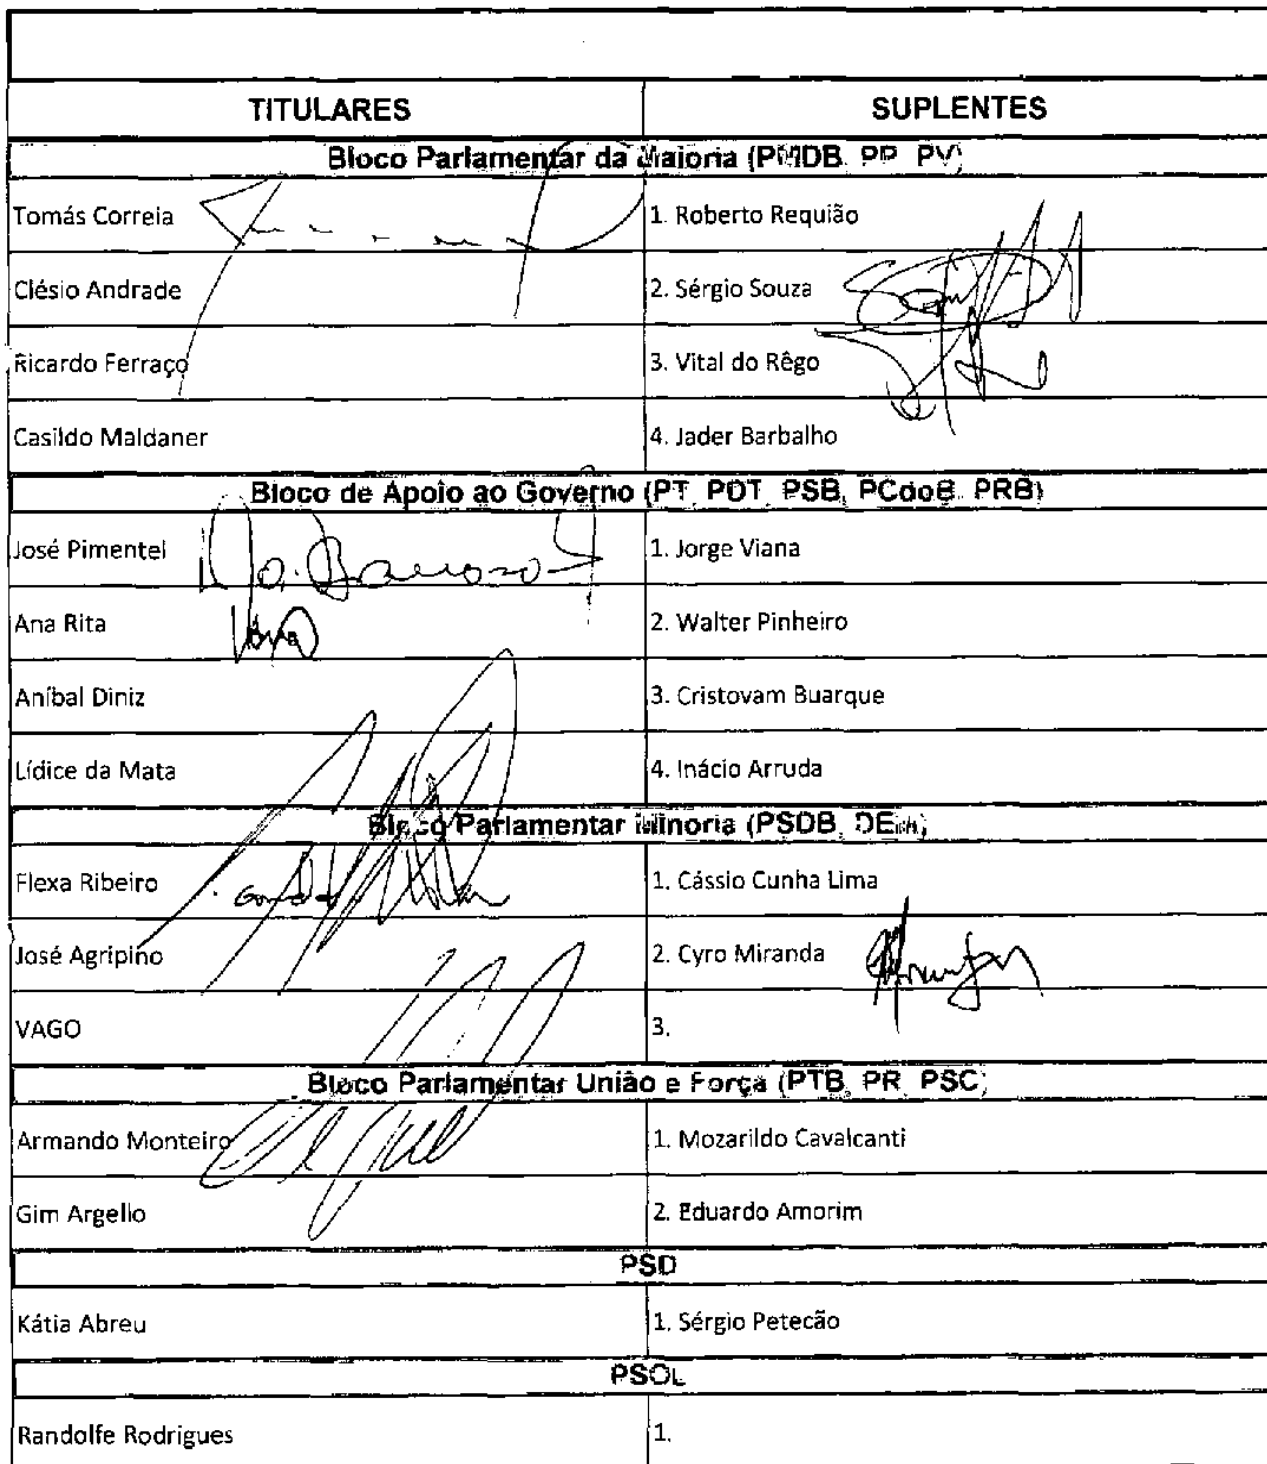 TITULARES SUPLENTES
Bloco Parlamentar da Maioria (PMDB, PP, PV)
Tomás Correia 1. Roberto Requião
Clésio Andrade 2. Sérgio Souza
Ricardo Ferraço 3. Vital do Rêgo
Casildo Maldaner 4. Jader Barbalho
Bloco de Apoio ao Governo (PT, PDT, PSB, PCdoB, PRB)
José Pimentel 1. Jorge Viana
Ana Rita 2. Walter Pinheiro
Aníbal Diniz 3. Cristovam Buarque
Lídice da Mata 4. Inácio Arruda
Bloco Parlamentar Minoria (PSDB, DEM)
Flexa Ribeiro 1. Cássio Cunha Lima
José Agripino 2. Cyro Miranda
VAGO 3.
Bloco Parlamentar União e Força (PTB, PR, PSC)
Armando Monteiro 1. Mozarildo Cavalcanti
Gim Argello 2. Eduardo Amorim
PSD
Kátia Abreu 1. Sérgio Petecão
PSOL
Randolfe Rodrigues 1.